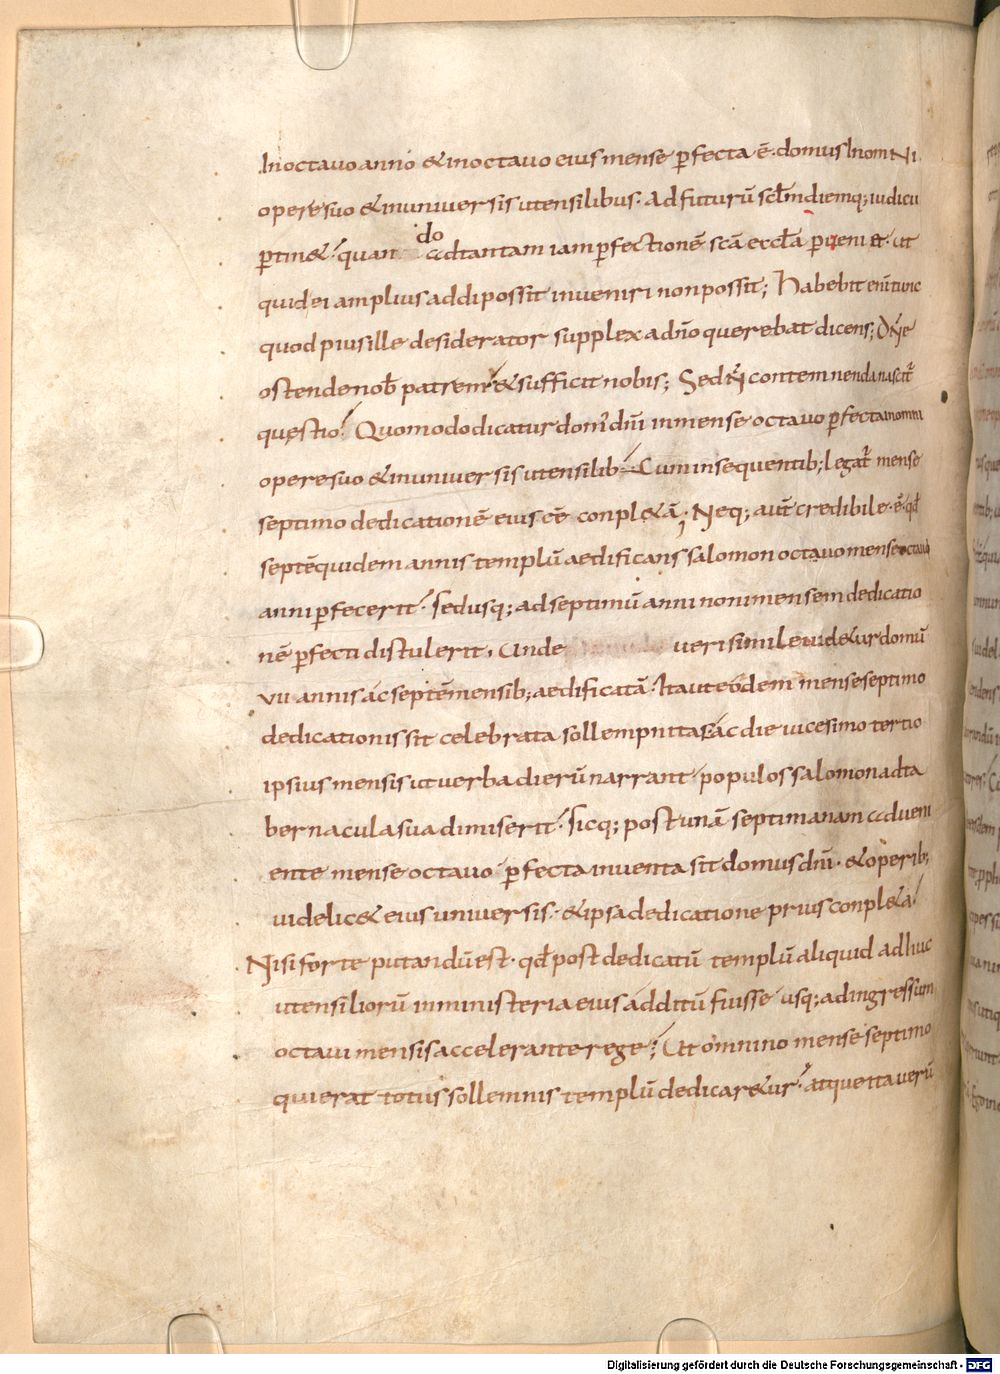 In octauo anno & in octauo eius mense ꝑfecta ē· domus In omni
opere suo & in uniuersis utensilibus· Ad futurū sc̄lm diemq; iudicii
ꝑtin&· quando ad tantam iam ꝑfectionē sc̄a eccl̄a ꝑuenie&· ut
quid ei amplius addi possit inueniri non possit; Habebit enī tunc
quod pius ille desiderator supplex ad dn̄o querebat dicens; Dn̄e
ostende nob̄ patrem· & sufficit nobis; Sed n̄ contemnenda nascit᷑
questio· Quomodo dicatur dom' dn̄i in mense octauo ꝑfecta in omni
opere suo & in uniuersis utensilib· Cum in sequentib; legat᷑ mense
septimo dedicationē eius cē conpl&ā· Neq; aut̄ credibile· ē· qđ
septē quidem annis templū aedificans salomon octauo mense octaui
anni ꝑfecerit· sed usq; ad septimū anni noni mensem dedicatio
nē ꝑfecti distulerit· Unde ueri simile uid&ur domū
VII annis ac septē mensib; aedificatā· Ita ut eodem mense septimo
dedicationis sit celebrata sollempnitas ac die uicesimo tertio
ipsius mensis ut uerba dierū narrant populos salomon ad ta
bernacula sua dimiserit· sicq; post unā septimanam adueni
ente mense octauo ꝑfecta inuenta sit domus dn̄i· & operib;
uidelic& eius uniuersis· & ipsa dedicatione prius conpl&a
Nisi forte putandū est· qđ post dedicatū templū aliquid adhuc
utensiliorū in ministeria eius additū fuisse usq; ad ingressum
octaui mensis accelerante rege; Ut omnino mense septimo
qui erat totus sollemnis templū dedicar&ur· atque ita uerū
Digitalisierung gefördert durch die Deutsche Forschungsgemeinschaft - DFG